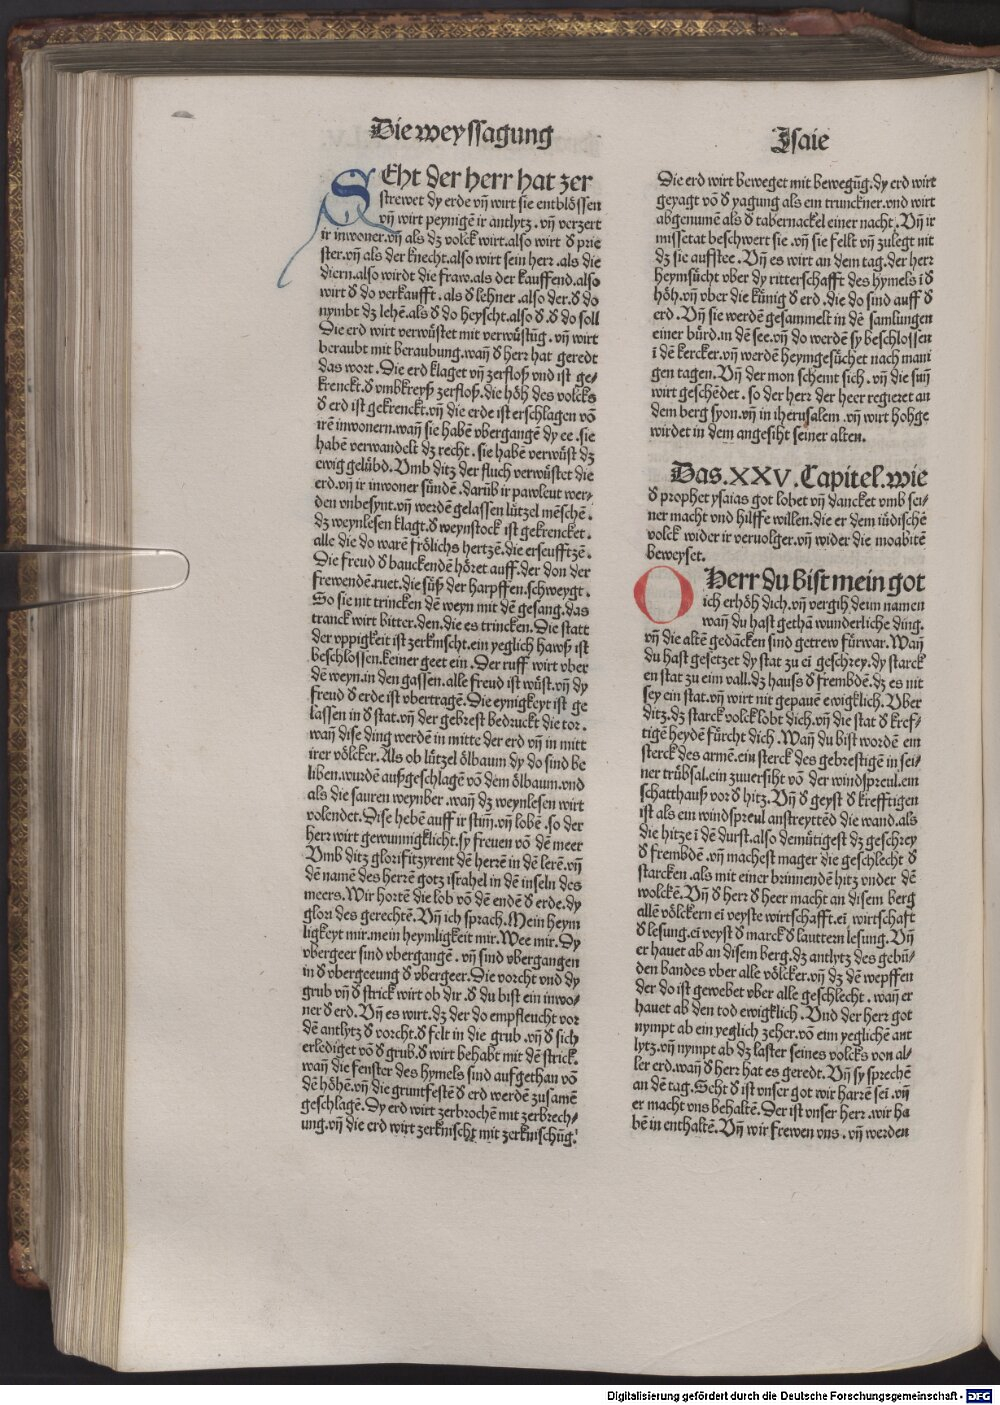 Die weyssagung
Isaie
SEht der herr hat zer
strewet dy erde vñ wirt sie entblössen
vñ wirt peynigẽ ir antlytz . vñ verzert
ir inwoner.vñ als dz volck wirt.also wirt đ prie
ster.vñ als der knecht.also wirt sein herr .als die
diern.also wirdt die fraw.als der kauffend.also
wirt đ do verkaufft . als đ lehner .also der.đ do
nymbt dz lehẽ.als đ do heyscht.also đ.đ do soll
Die erd wirt verwüstet mit verwüstũg. vñ wirt
beraubt mit beraubung.wañ đ herr hat geredt
das wort . Die erd klaget vñ zerfloß vnd ist ge⸗
krenckt.đ vmbkreyß zerfloß.die höh des volcks
đ erd ist gekrenckt.vñ die erde ist erschlagen võ
irẽ inwonern.wañ sie habẽ vbergangẽ dy ee .sie
habẽ verwandelt dz recht . sie habẽ verwüst dz
ewig gelübd. Vmb ditz der fluch verwüstet die
erd.vñ ir inwoner sündẽ.darüb ir pawleut wer⸗
den vnbesynt.vñ werdẽ gelassen lützel mẽschẽ.
dz weynlesen klagt.đ weynstock ist gekrencket.
alle die do warẽ frölichs hertzẽ.die erseufftzẽ.
Die freud đ bauckendẽ höret auff.der don der
frewendẽ.ruet.die süß der harpffen.schweygt.
So sie nit trincken dẽ weyn mit dẽ gesang.das
tranck wirt bitter.den.die es trincken. Die statt
der vppigkeit ist zerknischt.ein yeglich hawß ist
beschlossen.keiner geet ein . Der ruff wirt vber
dẽ weyn.in den gassen.alle freud ist wüst.vñ dy
freud đ erde ist vbertragẽ. Die eynigkeyt ist ge
lassen in đ stat.vñ der gebrest bedruckt die tor .
wañ dise ding werdẽ in mitte der erd vñ in mitt
irer völcker. Als ob lützel ölbaum dy do sind be
liben.wurdẽ außgeschlagẽ võ dem ölbaum.vnd
als die sauren weynber .wañ dz weynlesen wirt
volendet. Dise hebẽ auff ir stim̃.vñ lobẽ . so der
herr wirt gewunnigklicht.sy freuen võ dẽ meer
Vmb ditz glorifitzyrent dẽ herrẽ in dẽ lerẽ.vñ
dẽ namẽ des herrẽ gotz israhel in dẽ inseln des
meers. Wir hortẽ die lob võ dẽ endẽ đ erde.dy
glori des gerechtẽ. Vñ ich sprach. Mein heym
ligkeyt mir.mein heymligkeit mir. Wee mir. Dy
vbergeer sind vbergangẽ . vñ sind vbergangen
in đ vbergeeung đ vbergeer. Die vorcht vnd dy
grub vñ đ strick wirt ob dir .đ du bist ein inwo⸗
ner đ erd. Vñ es wirt.dz der do empfleucht vor
dẽ antlytz đ vorcht.đ felt in die grub .vñ đ sich
erlediget võ đ grub.đ wirt behabt mit dẽ strick.
wañ die fenster des hymels sind aufgethan võ
dẽ höhẽ.vñ die gruntfestẽ đ erd werdẽ zusamẽ
geschlagẽ. Dy erd wirt zerbrochẽ mit zerbrech⸗
ung.vñ die erd wirt zerknischt mit zerknischũg.
Die erd wirt beweget mit bewegũg.dy erd wirt
geyagt võ đ yagung als ein trunckner.vnd wirt
abgenumẽ als đ tabernackel einer nacht . Vñ ir
missetat beschwert sie .vñ sie fellt vñ zulegt nit
dz sie aufstee. Vñ es wirt an dem tag.der herr
heymsücht vber dy ritterschafft des hymels ĩ đ
höh.vñ vber die künig đ erd .die do sind auff đ
erd . Vñ sie werdẽ gesammelt in dẽ samlungen
einer bürd.in dẽ see.vñ do werdẽ sy beschlossen
ĩ dẽ kercker.vñ werdẽ heymgesüchet nach mani
gen tagen. Vñ der mon schemt sich .vñ die suñ
wirt geschẽdet. so der herr der heer regieret an
dem berg syon.vñ in iherusalem .vñ wirt hohge
wirdet in dem angesiht seiner alten.
Das.XXV.Capitel.wie
đ prophet ysaias got lobet vñ dancket vmb sei⸗
ner macht vnd hilffe willen.die er dem iüdischẽ
volck wider ir veruolger.vñ wider die moabitẽ
beweyset.
O Herr du bist mein got
ich erhöh dich.vñ vergih deim namen
wañ du hast gethã wunderliche ding.
vñ die altẽ gedãcken sind getrew fürwar. Wañ
du hast gesetzet dy stat zu eĩ geschrey.dy starck
en stat zu eim vall.dz hauß đ frembdẽ.dz es nit
sey ein stat.vñ wirt nit gepauẽ ewigklich. Vber
ditz.dz starck volck lobt dich.vñ die stat đ kref⸗
tigẽ heydẽ fürcht dich . Wañ du bist wordẽ ein
sterck des armẽ.ein sterck des gebrestigẽ in sei⸗
ner trübsal.ein zuuersiht võ der windspreul.ein
schatthauß vor đ hitz. Vñ đ geyst đ krefftigen
ist als ein windspreul anstreyttẽd die wand.als
die hitze ĩ dẽ durst.also demütigest dz geschrey
đ frembdẽ .vñ machest mager die geschlecht đ
starcken .als mit einer brinnendẽ hitz vnder dẽ
wolckẽ. Vñ đ herr đ heer macht an disem berg
allẽ völckern eĩ veyste wirtschafft.eĩ wirtschaft
đ lesung.eĩ veyst đ marck đ lauttern lesung. Vñ
er hauet ab an disem berg.dz antlytz des gebü⸗
den bandes vber alle völcker.vñ dz dẽ wepffen
der do ist gewebet vber alle geschlecht .wañ er
hauet ab den tod ewigklich . Vnd der herr got
nympt ab ein yeglich zeher.võ eim yeglichẽ ant
lytz.vñ nympt ab dz laster seines volcks von al⸗
ler erd.wañ đ herr hat es geredt. Vñ sy sprechẽ
an dẽ tag. Seht đ ist vnser got wir harrẽ sei .vñ
er macht vns behaltẽ. Der ist vnser herr .wir ha
bẽ in enthaltẽ. Vñ wir frewen vns . vñ werden
Digitalisierung gefördert durch die Deutsche Forschungsgemeinschaft - DFG